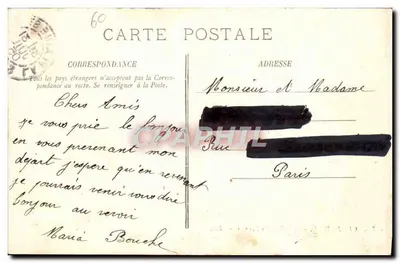 60
CARTE POSTALE
CORRESPONDANCE
Tous les pays étrangers n'acceptent pas la Corres-
pondance au recto. Se renseigner à la Poste.
ADRESSE
Chers Amis
je vous prie le bonjour
en vous prevenant mon
départ j'espere qu'en revenant
je pourrais venir vous dire
bonjour au revoir
Maria Bouche
Monsieur et Madame
Rue
Paris
CPAPHIL.COM